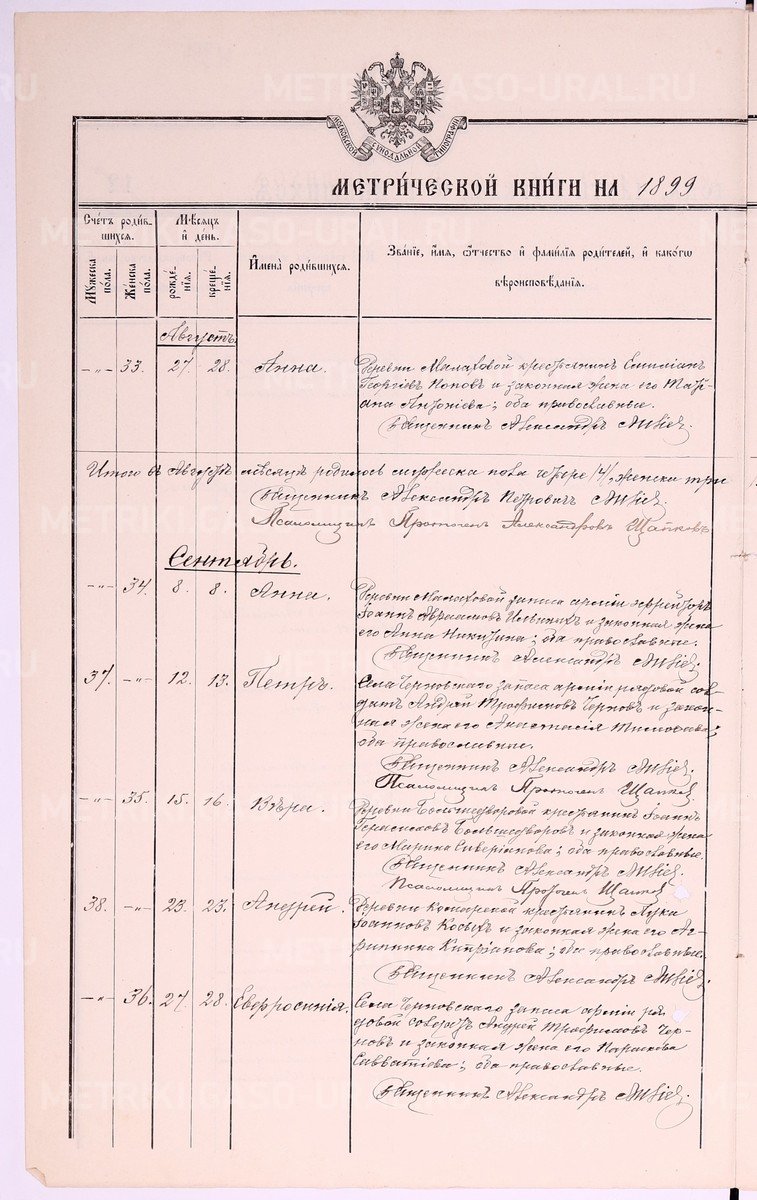 METRIKI.ASO-URAL.RU
МОСКОВСКОЙ СѴНОДАЛЬНОЙ ТИПОГРАФІИ
МЕТРИ́ЧЕСКОЙ КНИ́ГИ НА 1899
Сче́тъ роди́вшихся.
Мꙋ́жеска по́ла.
Же́нска по́ла.
Мѣ́сяцъ и҆ де́нь.
рожде́нїѧ.
креще́нїѧ.
И҆мена̀ роди́вшихся.
Зва́нїе, и҆́мѧ, ѻ҆́тчество и҆ фами́лїѧ роди́телей, и҆ како́гѡ
вѣроисповѣ́данїѧ.
Августъ
-„- 33. 27. 28. Анна.
Деревни Малаховой крестьянинъ Емиліанъ
Георгіевъ Поповъ и законная жена его Татi-
ана Антоніева; оба православные.
Священникъ Александръ
Итого въ Августѣ мѣсяцѣ родилось мужеска пола четыре /4/, женска три
Священникъ Александръ Петровичъ
Псаломщикъ Александровъ Щапковъ
Сентябрь.
-„- 34. 8. 8. Анна.
Деревни Малаховой запаса арміи ефрейторъ
Іоаннъ Авраамовъ Ильиныхъ и законная жена
его Анна Никитина; оба православные.
Священникъ Александръ
37. -„- 12. 13. Петръ.
Села Черновскаго запаса арміи рядовой сол-
датъ Андрей Трофимовъ Черновъ и закон-
ная жена его Анастасія Тимофеева;
оба православные.
Священникъ Александръ
Псаломщикъ
-„- 35. 15. 16. Вѣра.
Деревни Большедворовой крестьянинъ Іоаннъ
Герасимовъ Большедворовъ и законная жена
его Марина Сиверіанова; оба православные.
Священникъ Александръ
Псаломщикъ
38. -„- 23. 23. Андрей.
Деревни крестьянинъ Лука
Іоанновъ Косыхъ и законная жена его Аг-
рипина Кипріанова; оба православные.
Священникъ Александръ
-„- 36. 27. 28. Евфросинія.
Села Черновскаго запаса арміи ря-
довой солдатъ Андрей Трофимовъ Чер-
новъ и законная жена его Параскева
Савватіева; оба православные.
Священникъ Александръ